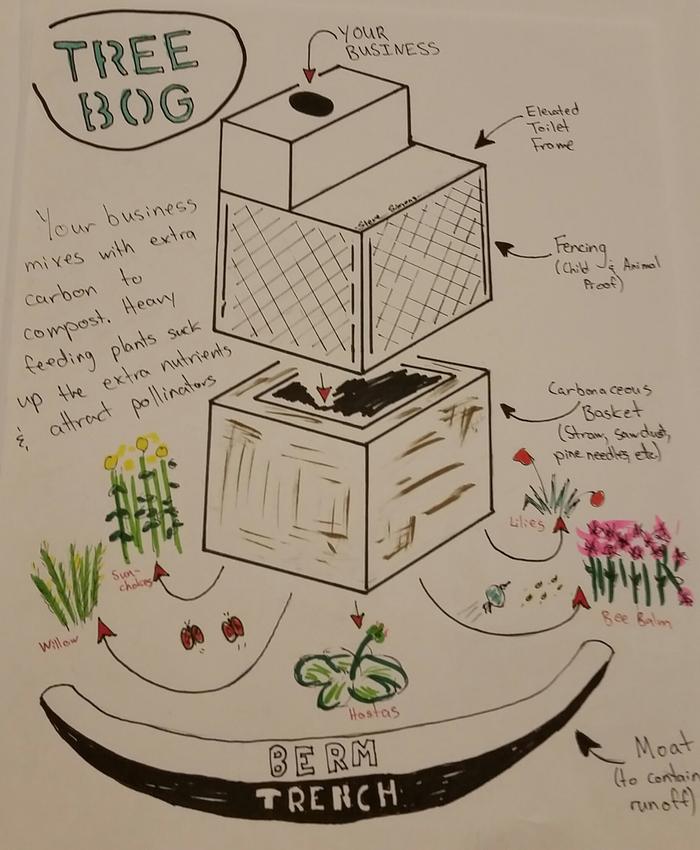 TREE
BOG
YOUR
BUSINESS
Elevated
Toilet
Frame
Your business
mixes with extra
carbon to
compost. Heavy
feeding plants suck
up the extra nutrients
& attract pollinators
Fencing
(Child & Animal
Proof)
Carbonaceous
Basket
(Straw, sawdust,
pine needles, etc)
Lilies
Bee Balm
Sun-
chokes
Willow
Hostas
BERM
TRENCH
Moat
(to contain
runoff)